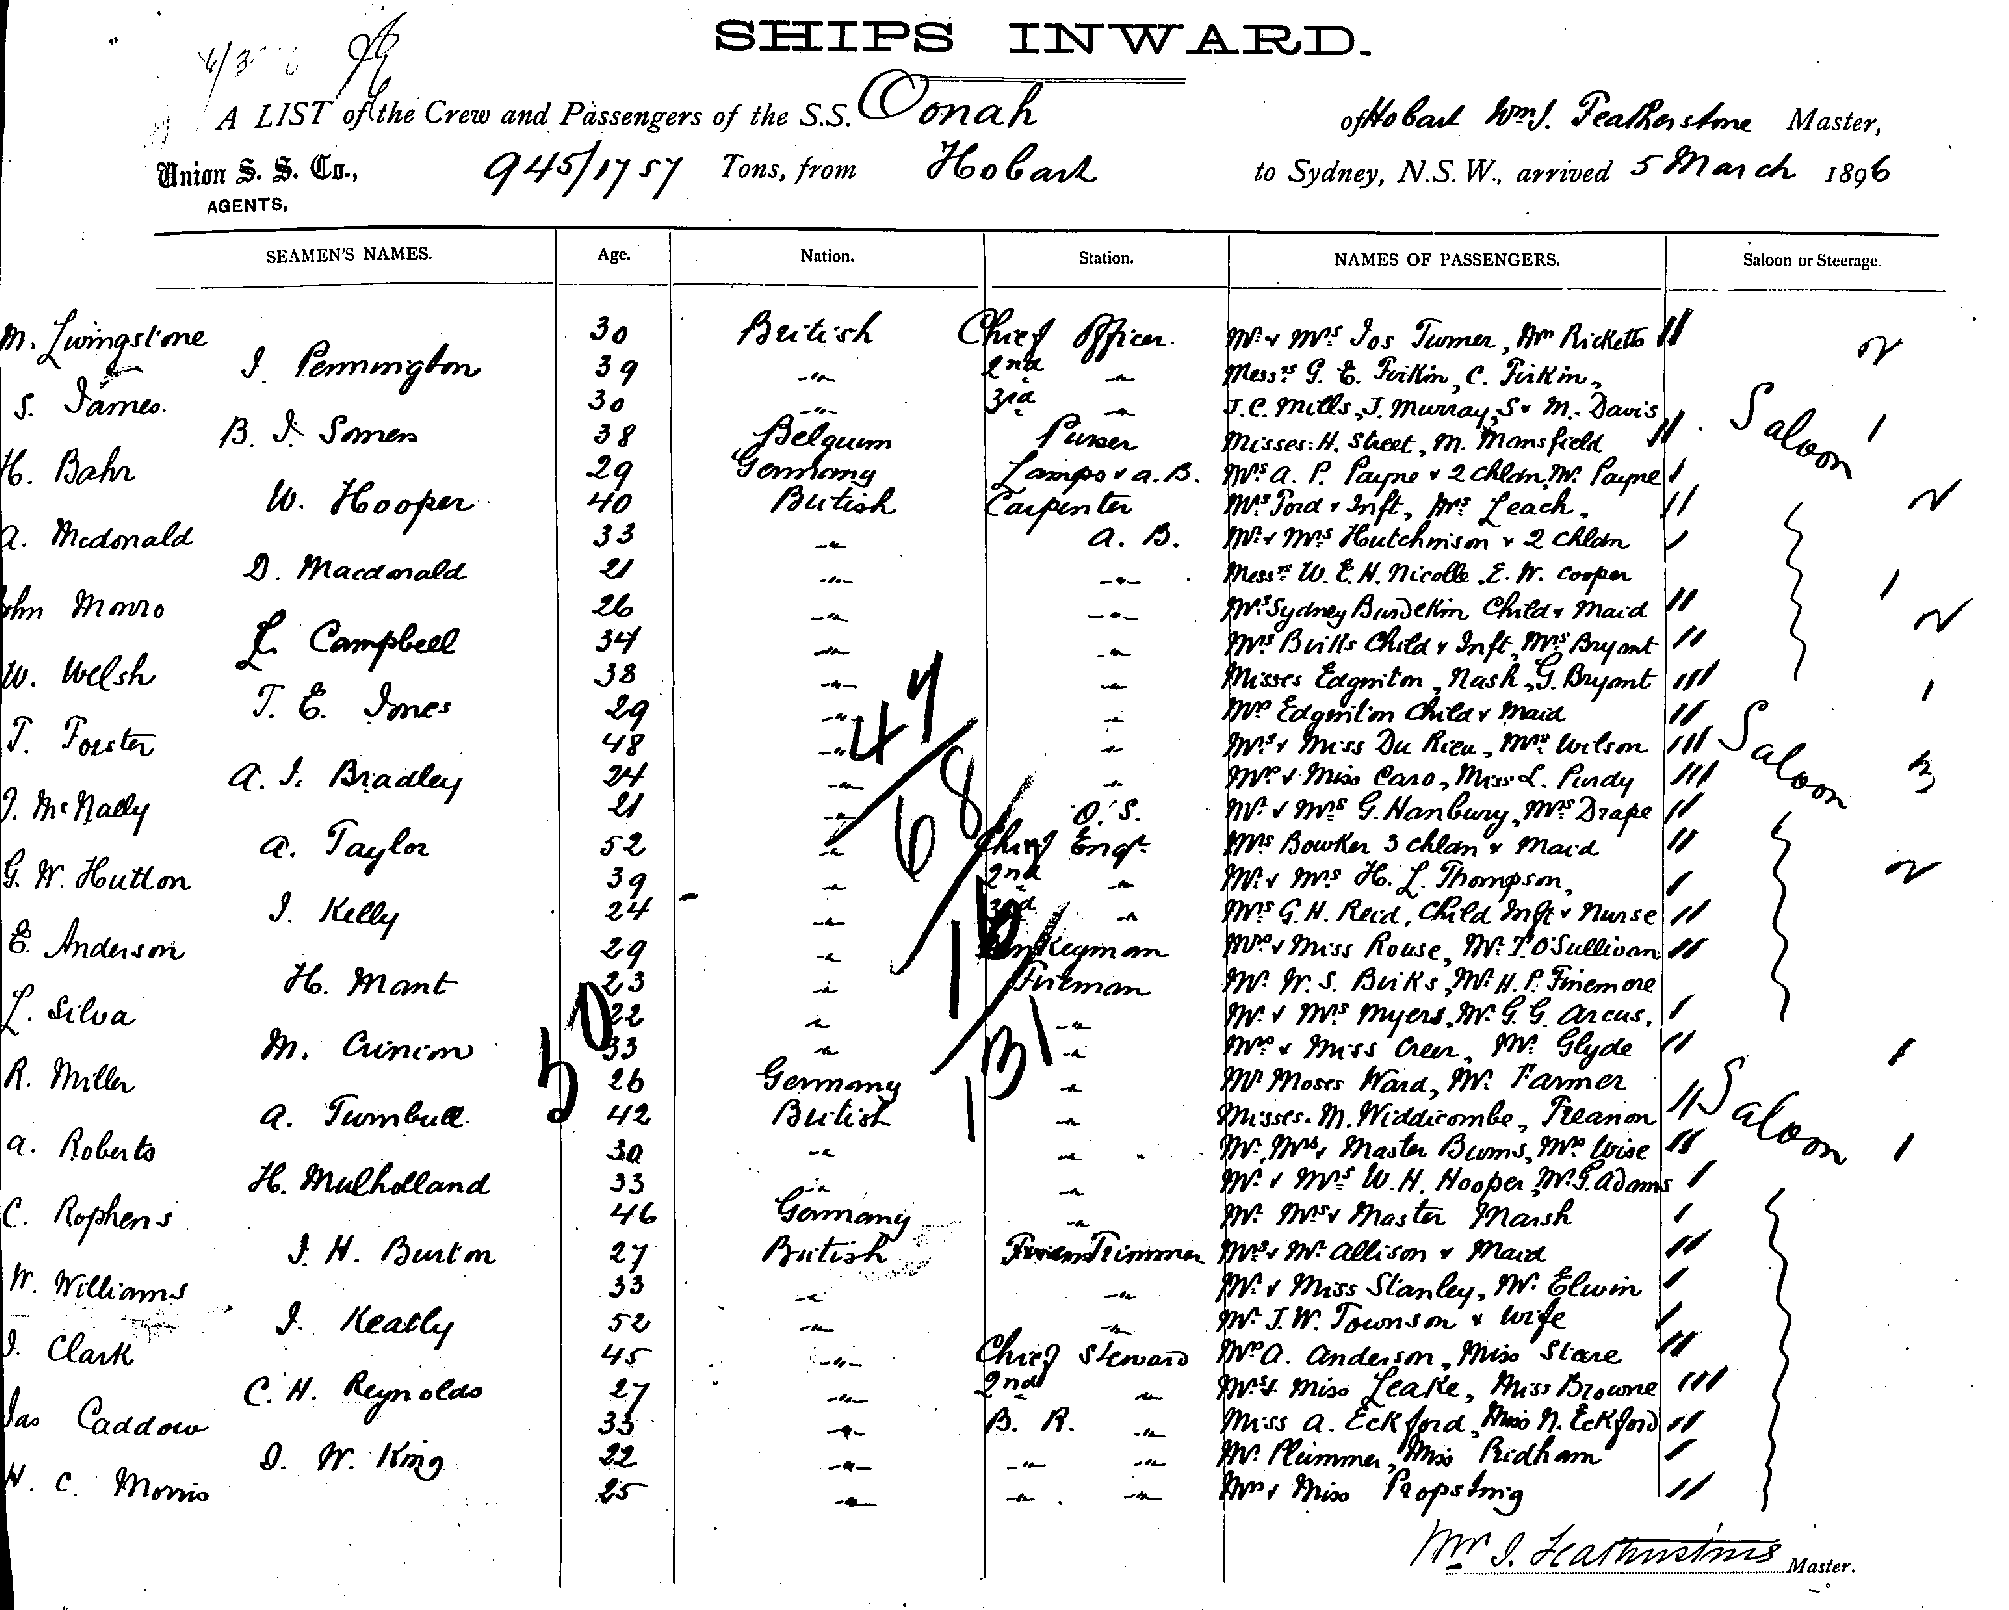 SHIPS INWARD.
A LIST of the Crew and Passengers of the S.S. Oonah of Hobart Wm J. Featherstone Master,
Union S. S. Co., 945/1757 Tons, from Hobart to Sydney, N.S.W., arrived 5 March 1896
AGENTS,
SEAMEN'S NAMES. Age. Nation. Station. NAMES OF PASSENGERS. Saloon or Steerage.
M. Livingstone 30 British Chief Officer. Mr & Mrs Jos Turner, Mrs Ricketts 2
J. Pennington 39 -"- 2nd -"- Messrs G. E. Firkin, C. Firkin,
S. James. 30 -"- 3rd -"- J. C. Mills, J. Murray, S & M. Davis Saloon 1
B. J. Somers 38 Belgium Purser Misses. H. Street, M. Mansfield
H. Bahr 29 Germany Lamps & A.B. Mrs A. P. Payne & 2 Chldn, Mr. Payne
W. Hooper 40 British Carpenter Mrs Ford & Inft, Mrs Leach, 2
A. Mcdonald 33 -"- A. B. Mr & Mrs Hutchinson & 2 Chldn
D. Macdonald 21 -"- -"- Messrs W. E. H. Nicolle, E. W. Cooper 1
John Monro 26 -"- -"- Mrs Sydney Burdekin Child & Maid 2
L. Campbell 34 -"- -"- Mrs Birks Child & Inft, Mrs Bryant
W. Welsh 38 -"- -"- Misses Edgerton, Nash, G. Bryant 1
T. E. Jones 29 -"- -"- Mrs Edgerton Child & Maid
T. Forster 48 -"- -"- Mrs & Miss Du Rieu, Mrs Wilson Saloon 3
A. J. Bradley 24 -"- -"- Mrs & Miss Caro, Miss L. Purdy
J. McNally 21 -"- O. S. Mr & Mrs G. Hanbury, Mrs Drape
A. Taylor 52 -"- Chief Engr. Mrs Bowker 3 Chldn & Maid
G. W. Hutton 39 -"- 2nd -"- Mr & Mrs H. L. Thompson, 2
J. Kelly 24 -"- 3rd -"- Mrs G. H. Reid, Child Inft & Nurse
E. Anderson 29 -"- Donkeyman Mrs & Miss Rouse, Mr. T. O'Sullivan
H. Mant 23 -"- Fireman Mr. W. S. Birks, Mr. H. P. Finemore
L. Silva 22 -"- -"- Mr & Mrs Myers, Mr. G. G. Arcus,
M. Crinion 33 -"- -"- Mrs & Miss Creer, Mr Glyde 1
R. Miller 26 Germany -"- Mr Moses Ward, Mr. Farmer
A. Turnbull 42 British -"- Misses. M. Widdicombe, Treanon Saloon
A. Roberts 30 -"- -"- Mr, Mrs & Master Burns, Mrs Wise 1
H. Mulholland 33 -"- -"- Mr & Mrs W. H. Hooper, Mr. G. Adams
C. Rophens 46 Germany -"- Mr Mrs & Master Marsh
J. H. Burton 27 British Trimmer Mrs & Mr. Allison & Maid
W. Williams 33 -"- -"- Mr & Miss Stanley, Mr. Elwin
J. Keatly 52 -"- -"- Mr J. W. Townson & wife
J. Clark 45 -"- Chief Steward Mrs A. Anderson, Miss Stare
C. H. Reynolds 27 -"- 2nd -"- Mrs & Miss Leake, Miss Browne
Jas Caddow 33 -"- B. R. -"- Miss A. Eckford, Miss N. Eckford
J. W. King 22 -"- -"- -"- Mr. Plummer, Miss Pridham
H. C. Morris 25 -"- -"- -"- Mrs & Miss Propsting
47
68
16
131
50
Wm J. Featherstone Master.